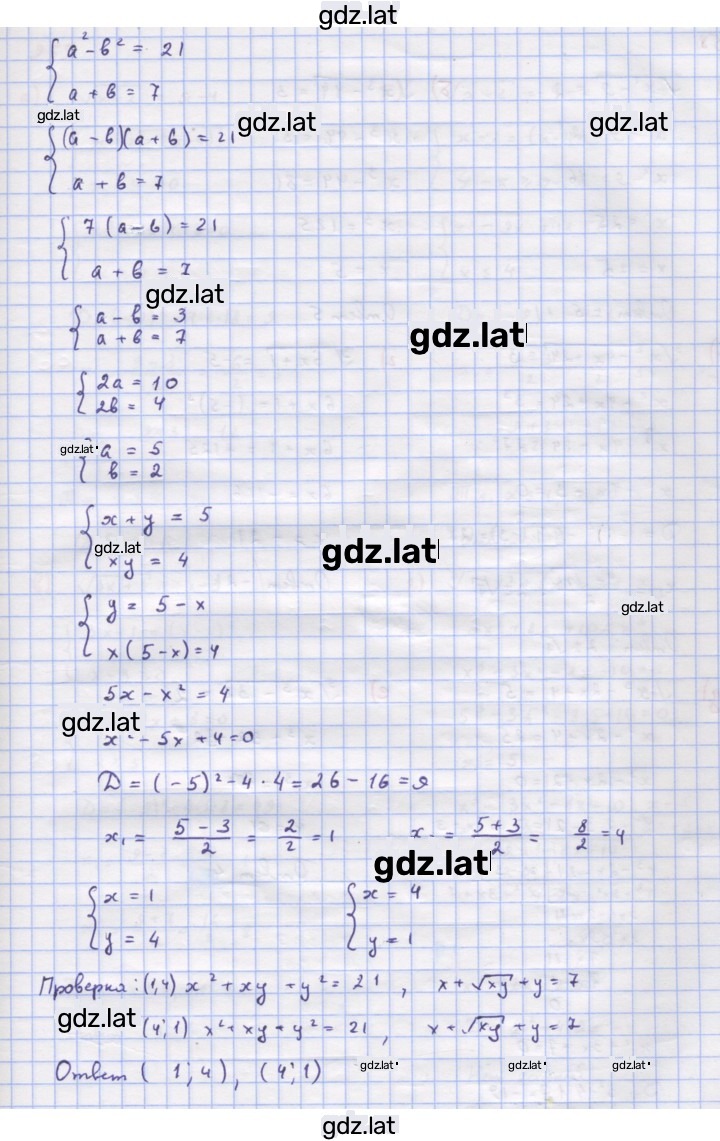 gdz.lat
a² - b² = 21
a + b = 7
gdz.lat gdz.lat gdz.lat
(a - b)(a + b) = 21
a + b = 7
7 (a - b) = 21
a + b = 7
gdz.lat
a - b = 3
gdz.lat
a + b = 7
2a = 10
2b = 4
gdz.lat a = 5
b = 2
x + y = 5
gdz.lat gdz.lat
xy = 4
y = 5 - x gdz.lat
x (5 - x) = 4
5x - x² = 4
gdz.lat
x² - 5x + 4 = 0
D = (-5)² - 4 · 4 = 26 - 16 = 9
x₁ = (5 - 3)/2 = 2/2 = 1 x = (5 + 3)/2 = 8/2 = 4
gdz.lat
x = 1 x = 4
y = 4 y = 1
Проверка: (1,4) x² + xy + y² = 21, x + √xy + y = 7
gdz.lat (4; 1) x² + xy + y² = 21, x + √xy + y = 7
Ответ (1; 4), (4; 1) gdz.lat gdz.lat gdz.lat
gdz.lat